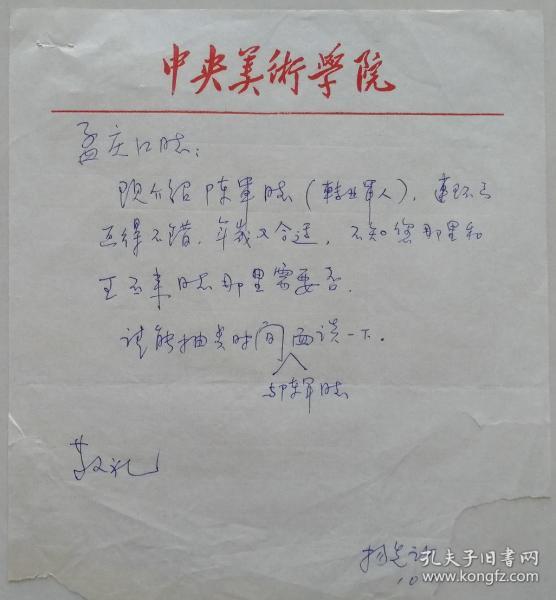 中央美術学院
孟庆江同志:
现介绍陈军同志(转业军人),连环画
画得不错,年岁又合适,不知您那里和
王玉来同志那里需要否。
请能抽贵时间面谈一下。
与陈军同志
敬礼
杨先让
10
孔夫子旧书网
www.kongfz.com